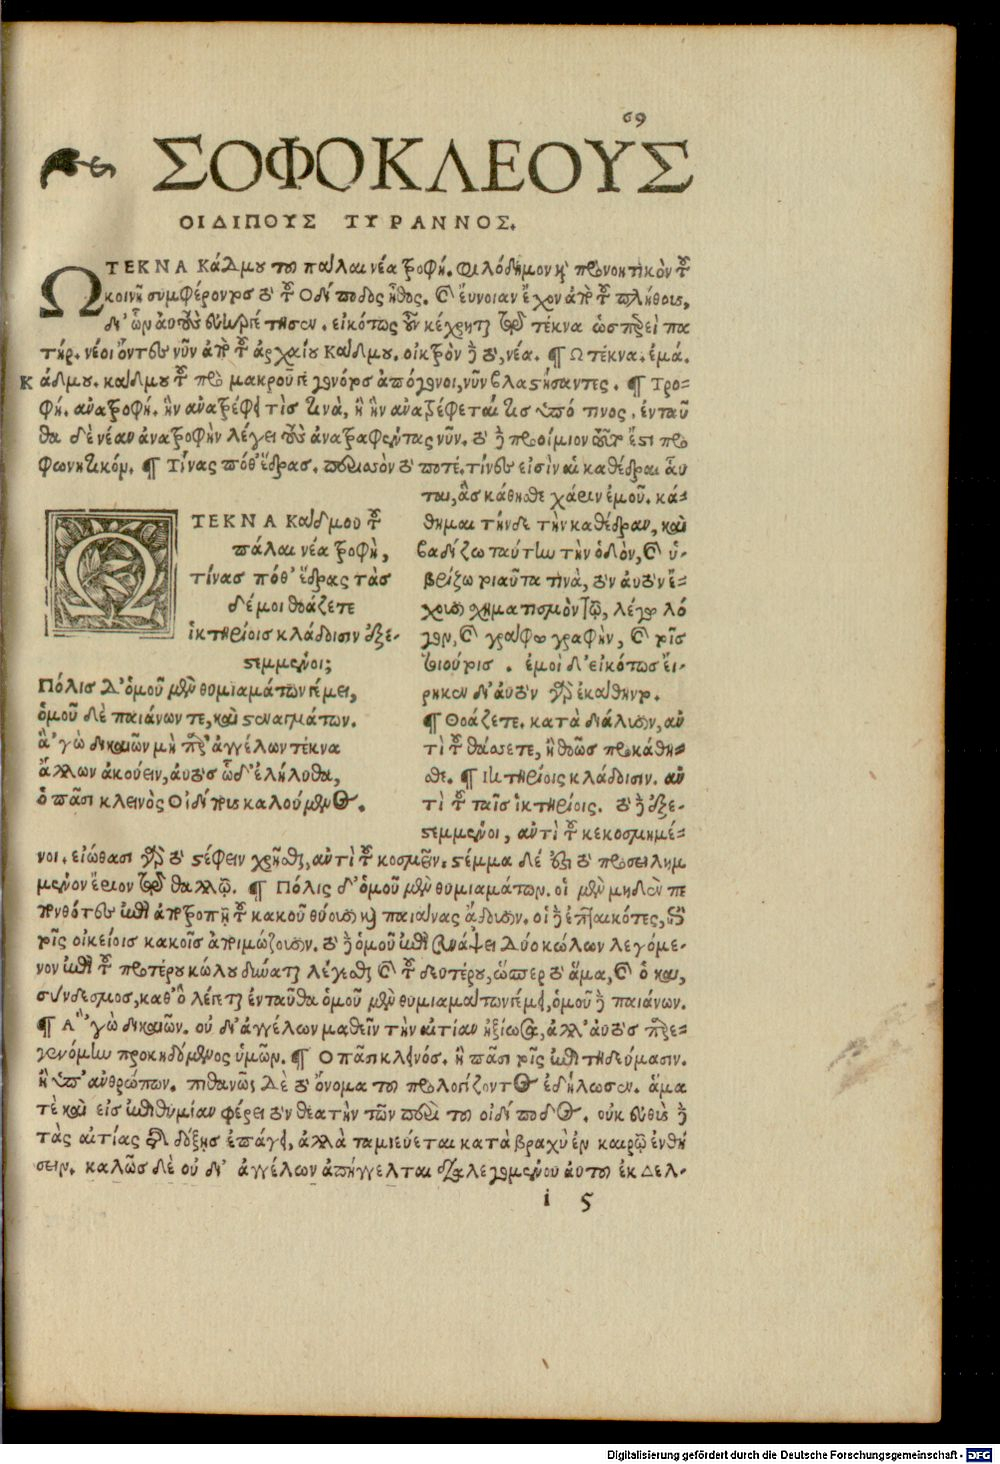 69
ΣΟΦΟΚΛΕΟΥΣ
ΟΙΔΙΠΟΥΣ ΤΥΡΑΝΝΟΣ.
Ω ΤΕΚΝΑ Κάδμου τοῦ πάλαι νέα τροφή. Φιλόδημον καὶ προνοητικὸν τοῦ
κοινῇ συμφέροντος τὸ τοῦ Οἰδίποδος ἦθος. καὶ εὔνοιαν ἔχον ἀπὸ τοῦ πλήθους,
δι' ὧν αὐτοὺς εὐηργέτησεν. εἰκότως οὖν κέχρηται τῷ τέκνα ὡσπερεὶ πα
τήρ. νέοι ὄντες νῦν ἀπὸ τοῦ ἀρχαίου Κάδμου. οἰκτρὸν δὲ τὸ, νέα. ¶ Ω τέκνα. ἐμά.
Κάδμου. κάδμου τοῦ πρὸ μακροῦ γεγονότος ἀπόγονοι, νῦν βλαστήσαντες. ¶ Τρο-
φή. ἀνατροφή. ἣν ἀνατρέφει τὶς τινὰ, ἢ ἣν ἀνατρέφεταί τις ὑπό τινος. ἐνταῦ
θα δὲ νέαν ἀνατροφὴν λέγει τοὺς ἀνατραφέντας νῦν. τὸ δὲ προοίμιον τοῦτο ἔστι προ
φωνητικόν. ¶ Τίνας πόθ' ἕδρας. περισσὸν τὸ ποτέ. τίνες εἰσὶν αἱ καθέδραι αὗ
ται, ἃς κάθησθε χάριν ἐμοῦ. κά-
θημαι τήνδε τὴν καθέδραν, καὶ
βαδίζω ταύτην τὴν ὁδὸν, καὶ ὑ-
βρίζω τοιαῦτα τινὰ,
¶ Θοάζετε. κατὰ διάλυσιν, ἀν
τὶ τοῦ θάσσετε, ἢ θοῶς προκάθη-
σθε. ¶ Ἱκτηρίοις κλάδοισιν. ἀν
τὶ τοῦ ταῖς ἱκτηρίοις. τὸ δὲ ἐξε-
στεμμένοι, ἀντὶ τοῦ κεκοσμημέ-
Ω ΤΕΚΝΑ Κάδμου τοῦ
πάλαι νέα τροφὴ,
τίνας πόθ' ἕδρας τὰς
δέ μοι θοάζετε
ἱκτηρίοις κλάδοισιν ἐξε-
στεμμένοι;
Πόλις δ' ὁμοῦ μὲν θυμιαμάτων γέμει,
ὁμοῦ δὲ παιάνων τε, καὶ στεναγμάτων.
ἃ 'γὼ δικαιῶν μὴ παρ' ἀγγέλων τέκνα
ἄλλων ἀκούειν, αὐτὸς ὧδ' ἐλήλυθα,
ὁ πᾶσι κλεινὸς Οἰδίπους καλούμενος.
νοι. εἰώθασι γὰρ τὸ στέφειν χρῆσθαι, ἀντὶ τοῦ κοσμεῖν. στέμμα δέ ἐστι τὸ προσειλημ
μένον ἔριον τῷ θαλλῷ. ¶ Πόλις δ' ὁμοῦ μὲν θυμιαμάτων. οἱ μὲν μηδὲν πε
πονθότες ἐπὶ ἀποτροπῇ τοῦ κακοῦ θύουσι καὶ παιᾶνας ᾄδουσιν.
τοῖς οἰκείοις κακοῖς ἀποιμώζουσιν. τὸ δὲ ὁμοῦ ἐπὶ συνάψει δύο κώλων λεγόμε-
νον ἐπὶ τοῦ προτέρου κώλου δύναται λέγεσθαι καὶ τοῦ δευτέρου, ὥσπερ τὸ ἅμα, καὶ ὁ καὶ,
σύνδεσμος, καθ' ὃ λέγεται ἐνταῦθα ὁμοῦ μὲν θυμιαμάτων γέμει, ὁμοῦ δὲ παιάνων.
¶ Α 'γὼ δικαιῶν. οὐ δι' ἀγγέλων μαθεῖν τὴν αἰτίαν ἠξίωσα, ἀλλ' αὐτὸς παρε-
γενόμην προκηδόμενος ὑμῶν. ¶ Ο πᾶσι κλεινός. ἢ πᾶσι τοῖς ἐπιτηδεύμασιν.
ἢ ὑπ' ἀνθρώπων. πιθανῶς δὲ τὸ ὄνομα τοῦ προλογίζοντος ἐδήλωσεν. ἅμα
τὲ καὶ εἰς ἐπιθυμίαν φέρει τὸν θεατὴν τῶν περὶ τοῦ οἰδίποδος. οὐκ εὐθὺς δὲ
τὰς αἰτίας τῆς δόξης ἐπάγει, ἀλλὰ ταμιεύεται κατὰ βραχὺ ἐν καιρῷ ἐνθή
σειν. καλῶς δὲ οὐ δι' ἀγγέλων ἀπήγγελται διαλεγομένου αὐτοῦ ἐκ Δελ-
i 5
Digitalisierung gefördert durch die Deutsche Forschungsgemeinschaft - DFG